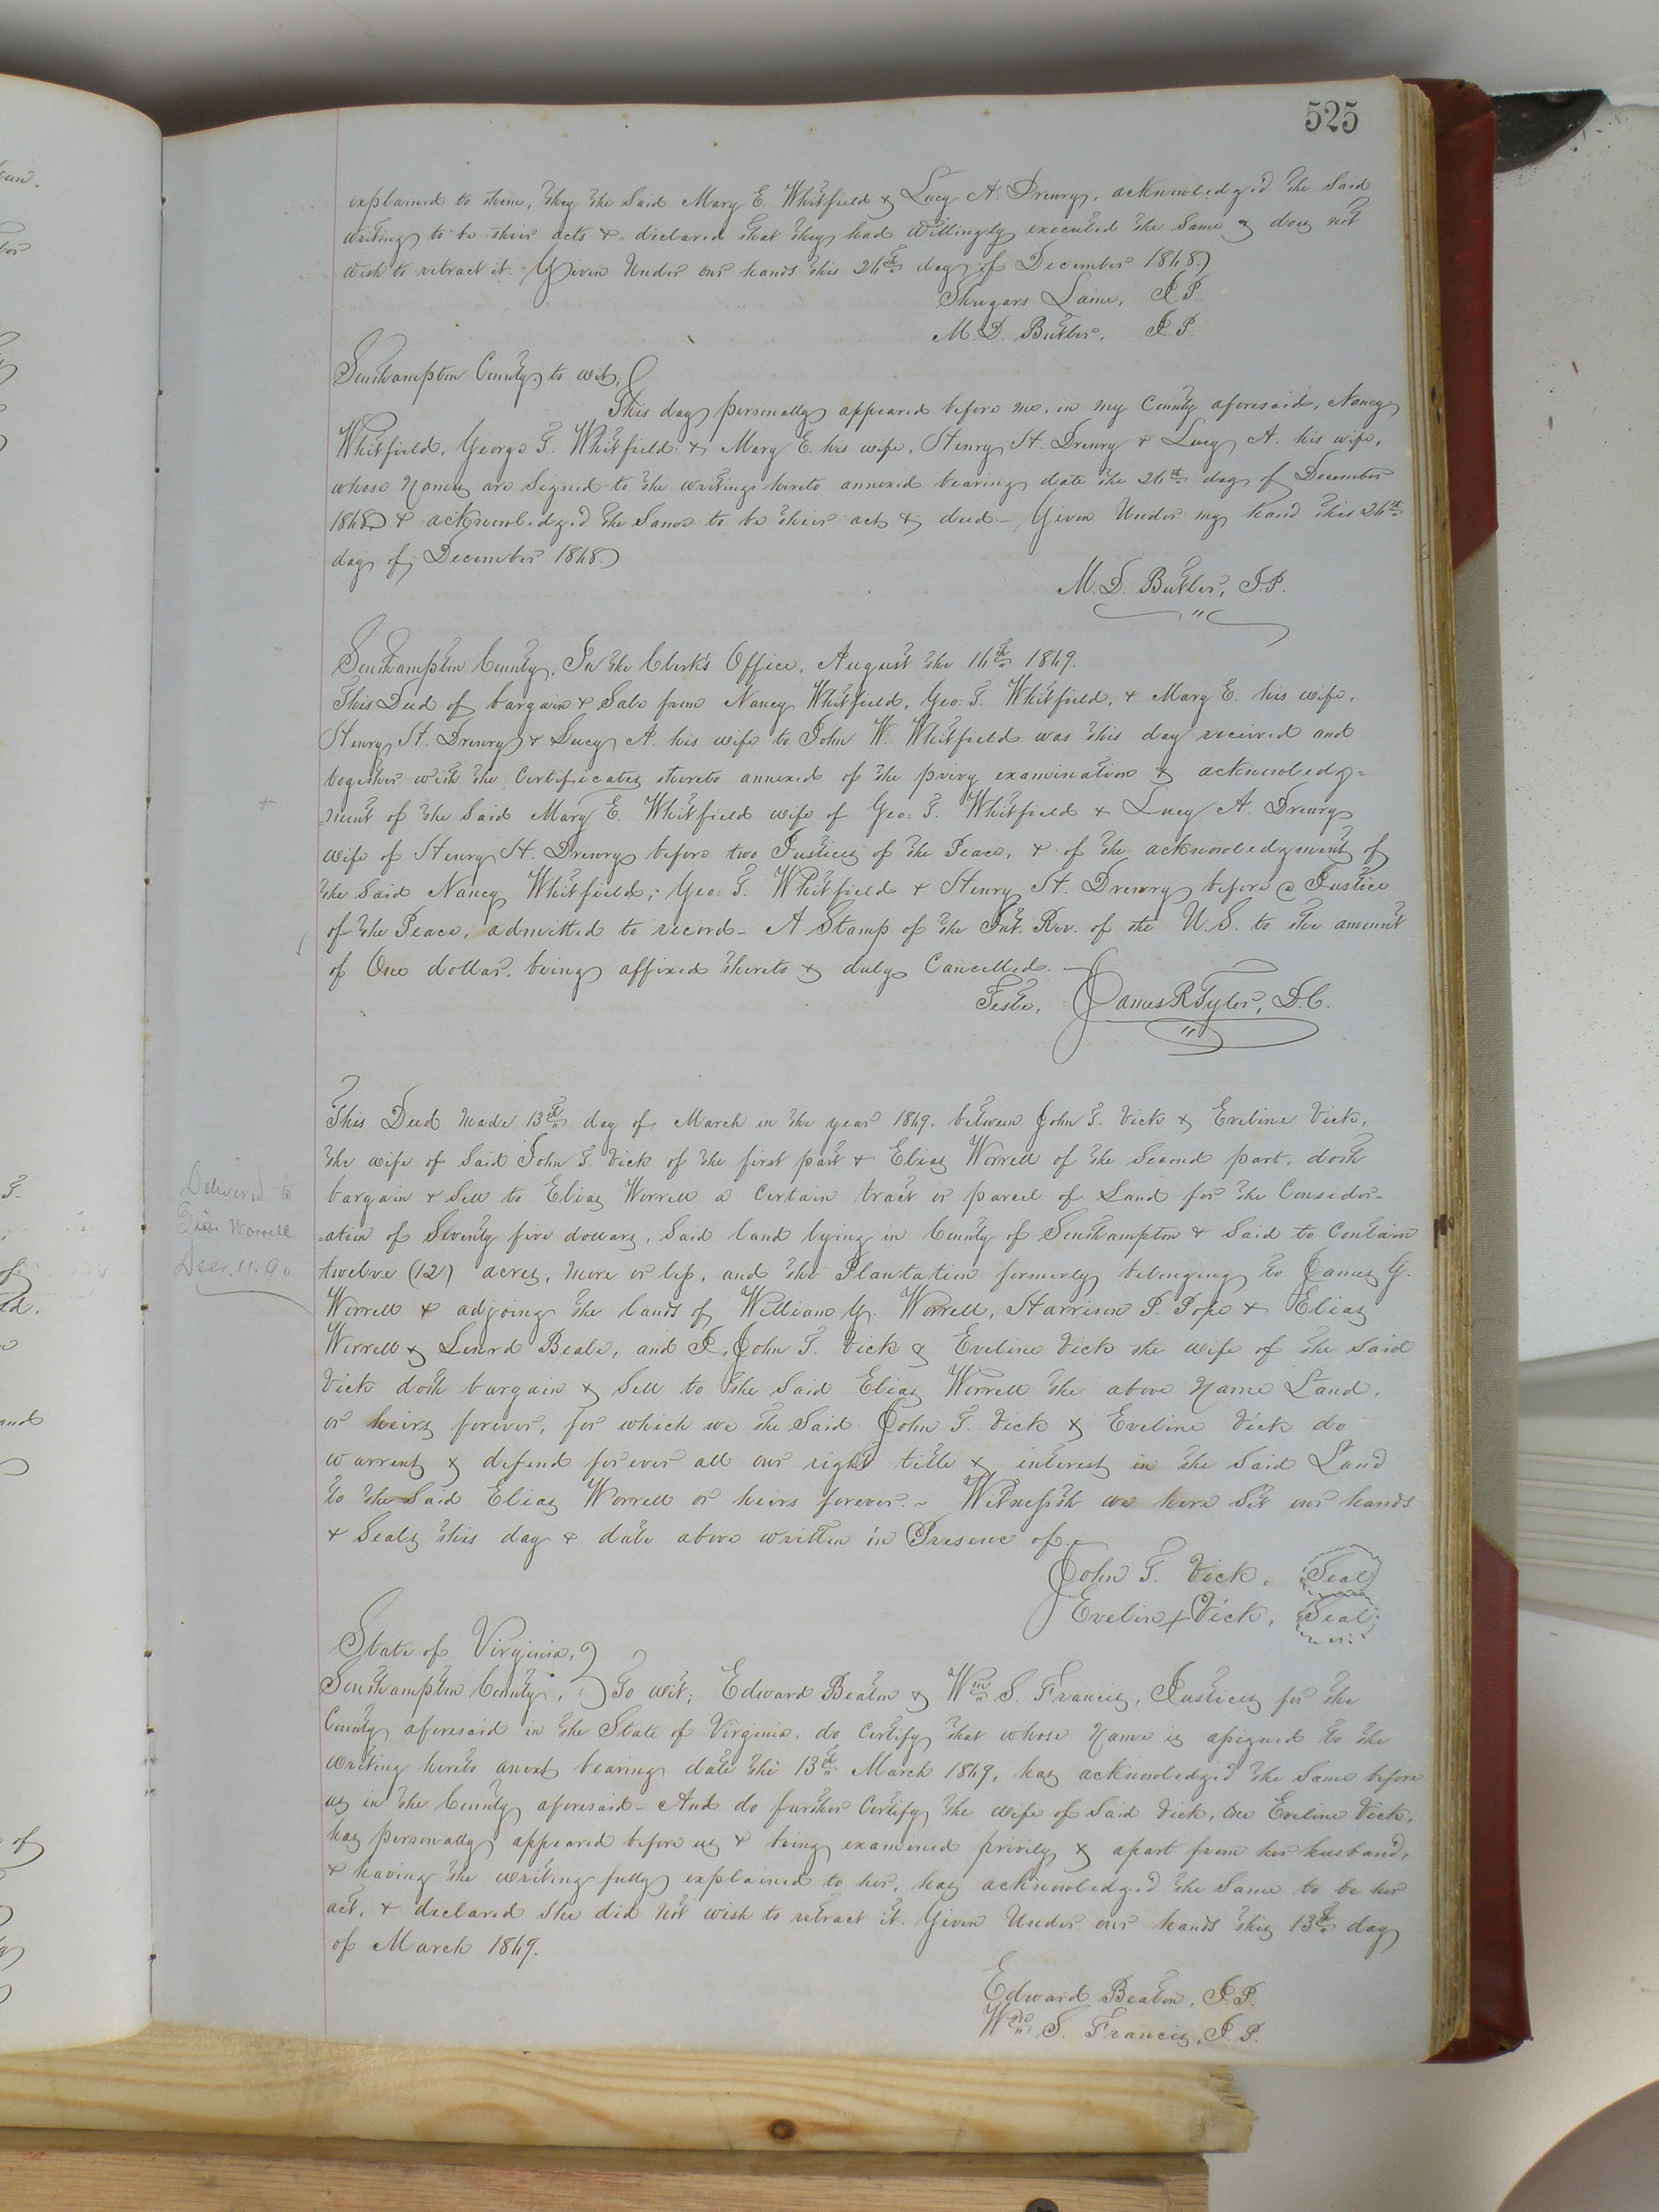 525
explained to them, they the said Mary E. Whitfield & Lucy A. Drewry, acknowledged the said
writing to be their acts & declared that they had willingly executed the same & does not
wish to retract it. Given Under our hands this 26th day of December 1868
Shugars Laine, J.P.
M. D. Butler, J.P.
Southampton County, to wit,
This day personally appeared before me, in my County aforesaid, Nancy
Whitfield, George T. Whitfield & Mary E. his wife, Henry H. Drewry & Lucy A. his wife,
whose Names are Signed to the writings hereto annexed bearing date the 26th day of December
1868 & acknowledged the Same to be their act & deed – Given Under my hand this 26th
day of December 1868
M. D. Butler, J.P.
Southampton County, In the Clerk's Office, August the 16th 1869.
This Deed of bargain & Sale from Nancy Whitfield, Geo: T. Whitfield, & Mary E. his wife,
Henry H. Drewry & Lucy A. his wife to John W. Whitfield was this day received and
together with the Certificates thereto annexed of the privy examination & acknowledg=
=ment of the Said Mary E. Whitfield wife of Geo: T. Whitfield & Lucy A. Drewry
wife of Henry H. Drewry before two Justices of the Peace, & of the acknowledgment of
the Said Nancy Whitfield, Geo: T. Whitfield & Henry H. Drewry before a Justice
of the Peace, admitted to record – A Stamp of the Int. Rev. of the U.S. to the amount
of One dollar, being affixed thereto & duly Cancelled. –
Teste, James R Tyler, D.C.
This Deed Made 13th day of March in the year 1869, between John T. Vick & Eveline Vick,
the wife of Said John T. Vick of the first part & Elias Worrell of the Second part, doth
bargain & Sell to Elias Worrell a Certain tract or parcel of Land for the Consider=
=ation of Seventy five dollars, Said land lying in County of Southampton & Said to Contain
twelve (12) acres, More or less, and the Plantation formerly belonging to James G.
Worrell & adjoing the lands of William G. Worrell, Harrison P. Pope & Elias
Worrell & Lenord Beale, and I, John T. Vick & Eveline Vick the wife of the said
Vick doth bargain & Sell to the Said Elias Worrell the above Name Land,
or heirs forever, for which we the Said John T. Vick & Eveline Vick do
warrent & defend forever all our right title & interest in the Said Land
to the Said Elias Worrell or heirs forever. ~ Witnesseth we here Set our hands
& Seals this day & date above written in Presence of –
John T. Vick, Seal
Evelin + Vick, Seal
Delivered to
Elias Worrell
Decr. 11. 90
State of Virginia,
Southampton County, To wit; Edward Beaton & Wm S. Francis, Justices for the
County aforesaid in the State of Virginia, do Certify that whose Name is assigned to the
writing hereto anext bearing date the 13th March 1869, has acknowledged the Same before
us in the County aforesaid – And do further Certify, the wife of Said Vick, One Eveline Vick,
has personally appeared before us & being examined privily & apart from her husband,
& having the writing fully explained to her, has acknowledged the Same to be her
act, & declared She did not wish to retract it. Given Under our hands this 13th day
of March 1869.
Edward Beaton, J.P.
Wm S. Francis, J.P.